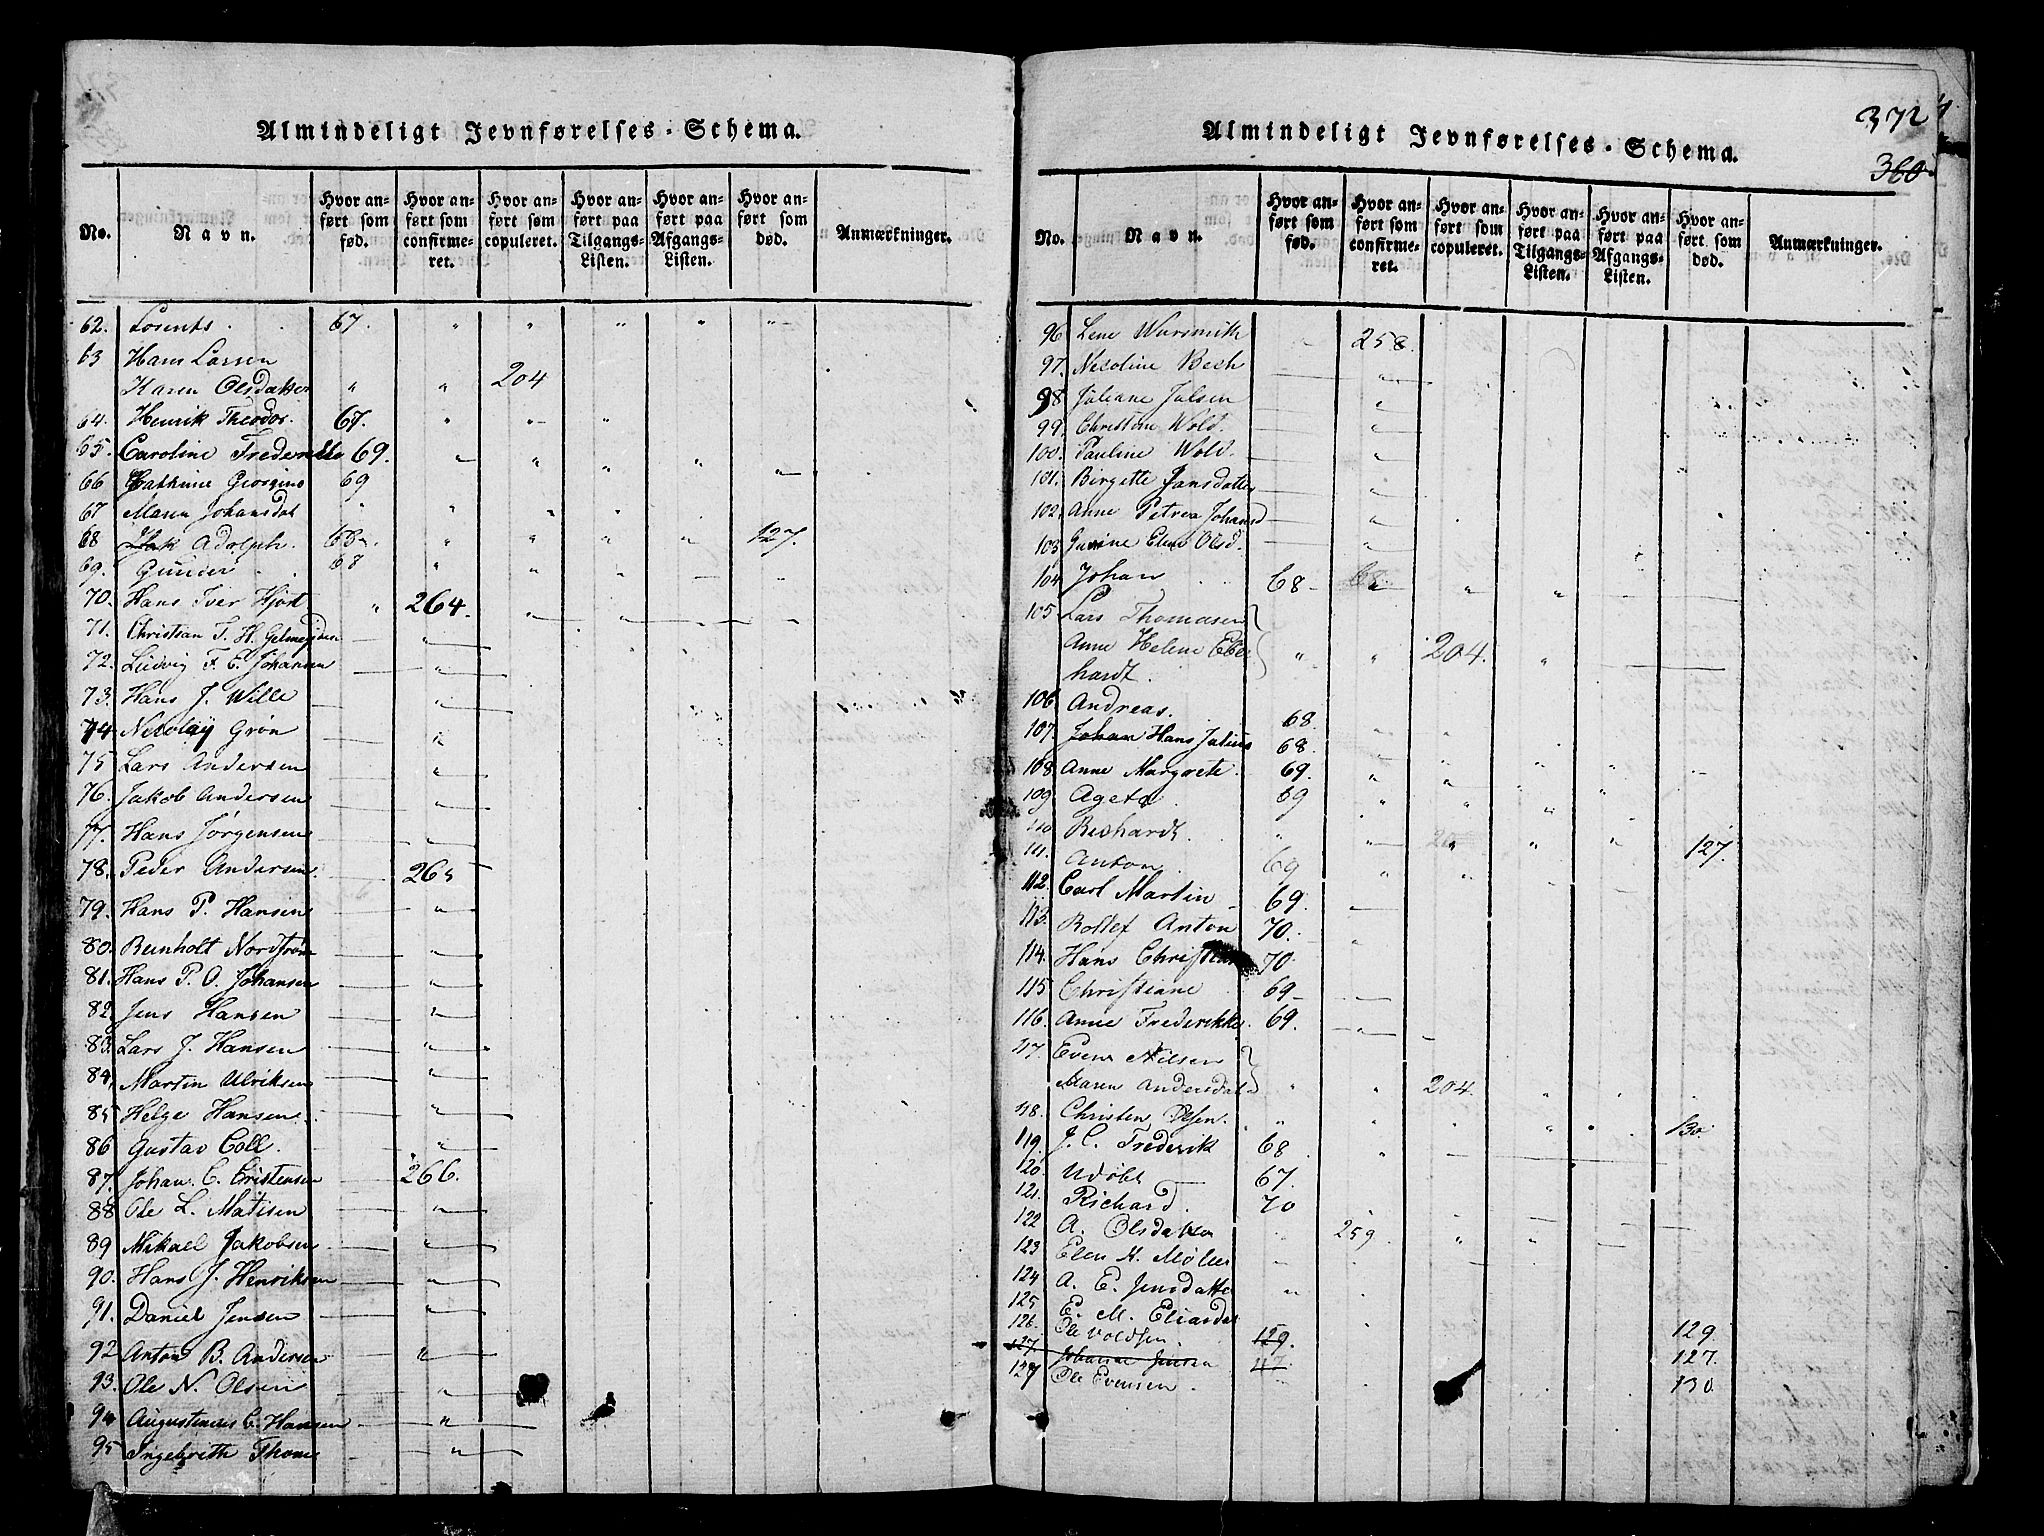 Almindeligt Jevnførelses-Schema.
No. Navn. Hvor anført som fød. Hvor anført som confirmeret. Hvor anført som copuleret. Hvor anført paa Tilgangs-Listen. Hvor anført paa Afgangs-Listen. Hvor anført som død. Anmærkninger.
62. Lorents. 67. " " " " "
63 Hans Larsen
Karen Olsdatter " " 204
64. Henrik Theodor. 67. " " "
65. Caroline 69. " " " "
66 Cathrine Georgine 69 " " " " "
67 Maren Johansdat " " " "
68 Adolph. " " " " 127.
69. Gunder 68 " " "
70. Hans Iver Hjort " 264.
71. Christian F. H.
72. Ludvig F. E. Johansen "
73. Hans J. Wille "
74. Nicolay Grøn "
75 Lars Andersen "
76. Jakob Andersen "
77. Hans Jørgensen "
78. Peder Andersen. 265
79. Hans P. Hansen "
80. Reinholt Nordstrøm "
81. Hans P. O. Johansen "
82. Jens Hansen "
83. Lars J. Hansen "
84. Martin Ulriksen "
85 Helge Hansen "
86 Gustav Coll. "
87. Johan. C. Cristensen 266.
88 Ole L. Matisen "
89 Mikael Jakobsen "
90. Hans J. Henriksen "
91. Daniel Jensen "
92 Anton B. Andersen "
93. Ole N. Olsen "
94 Augustinus C. Hansen "
95 Ingebreth Thom "
372
360
Almindeligt Jevnførelses-Schema.
No. Navn. Hvor anført som fød. Hvor anført som confirmeret. Hvor anført som copuleret. Hvor anført paa Tilgangs-Listen. Hvor anført paa Afgangs-Listen. Hvor anført som død. Anmærkninger.
96 Lene Wursmith 258.
97. Nicoline Bech "
98 Juliane Julsen "
99. Christine Wold. "
100. Pauline Wold. "
101. Birgitte Jansdatter "
102. Anne Petrea Johansd "
103 Elen Olsd. "
104. Johan 68 " " "
105. Lars Thomasen
Anne Helene Eber
hardt. " " 204. "
106 Andreas. 68
107. Johan Hans Julius 68.
108. Anne Margrete. 69.
109. Ageta. 69
110 Richardt. " 127.
111. Anton 69
112. Carl Martin 69.
113. Rollef Anton 70. "
114. Hans Christian 70.
115 Christiane 69
116. Anne Frederikke. 69. "
117. Even Nilsen
Maren Andersdat " " 204. "
118. Christen Olsen. " " " " 130.
119. J. C. Frederik 68 "
120. 67.
121. Richard. 70
122 A. Olsdatter 259. " "
123 Elen K. Møller "
124 A. E. Jensdatter "
125 E. M.
126. Ole Voldsen. 129. 129.
127. Johanne Jensen 127. 127.
127 Ole Evensen. 130